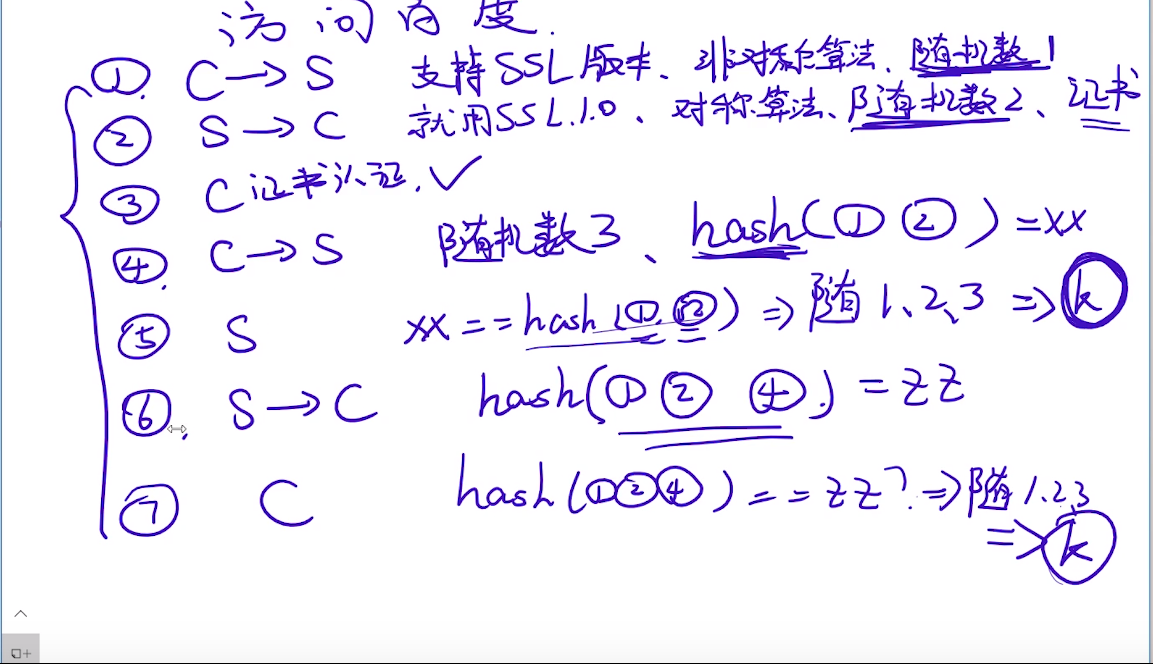 访问百度.
① C→S 支持SSL版本、非对称算法、随机数1
② S→C 就用SSL.1.0、对称算法、随机数2、证书
③ C证书认证.✓
④ C→S 随机数3、hash(① ②)=xx
⑤ S xx==hash(①.②)=>随1、2、3=>k
⑥ S→C hash(① ② ④.)=zz
⑦ C hash(①②④)==zz?=>随1.2、3
=>k